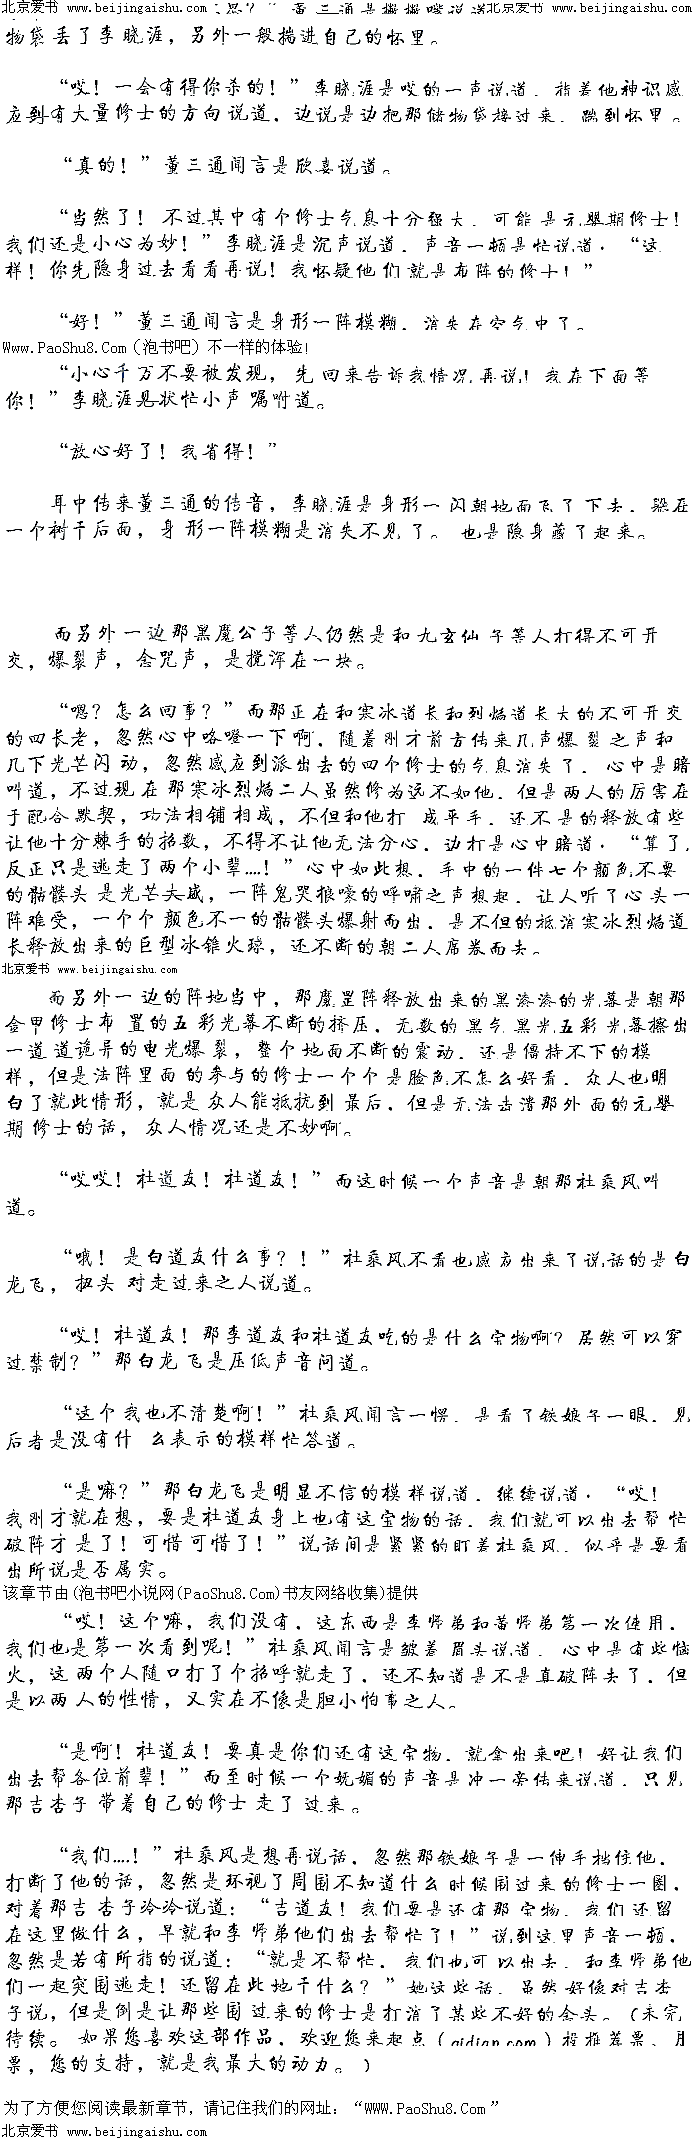 北京爱书 www.beijingaishu.com 北京爱书 www.beijingaishu.com
物袋丢了李晓涯，另外一般揣进自己的怀里。
“哎！一会有得你杀的！”李晓涯是哎的一声说道，指着他神识感
应到有大量修士的方向说道，边说是边把那储物袋接过来，踹到怀里。
“真的！”董三通闻言是欣喜说道。
“当然了！不过其中有个修士气息十分强大，可能是元婴期修士！
我们还是小心为妙！”李晓涯是沉声说道，声音一顿是忙说道，“这
样！你先隐身过去看看再说！我怀疑他们就是布阵的修士！”
“好！”董三通闻言是身形一阵模糊，消失在空气中了。
Www.PaoShu8.Com（泡书吧）不一样的体验!
“小心千万不要被发现，先回来告诉我情况再说！我在下面等
你！”李晓涯见状忙小声嘱咐道。
“放心好了！我省得！”
耳中传来董三通的传音，李晓涯是身形一闪朝地面飞了下去，躲在
一个树干后面，身形一阵模糊是消失不见了。也是隐身藏了起来。
而另外一边那黑魔公子等人仍然是和九玄仙子等人打得不可开
交，爆裂声，念咒声，是搅浑在一块。
“嗯？怎么回事？”而那正在和寒冰道长和烈焰道长大的不可开交
的四长老，忽然心中咯噔一下啊，随着刚才前方传来几声爆裂之声和
几下光芒闪动，忽然感应到派出去的四个修士的气息消失了，心中是暗
叫道，不过现在那寒冰烈焰二人虽然修为远不如他，但是两人的厉害在
于配合默契，功法相铺相成，不但和他打成平手，还不是的释放有些
让他十分棘手的招数，不得不让他无法分心，边打是心中暗道，“算了，
反正只是逃走了两个小辈....！”心中如此想，手中的一件七个颜色不要
的骷髅头是光芒大盛，一阵鬼哭狼嚎的呼啸之声想起，让人听了心头一
阵难受，一个个颜色不一的骷髅头爆射而出，是不但的抵消寒冰烈焰道
长释放出来的巨型冰锥火球，还不断的朝二人席卷而去。
北京爱书 www.beijingaishu.com
而另外一边的阵地当中，那魔罡阵释放出来的黑漆漆的光幕是朝那
金甲修士布置的五彩光幕不断的挤压，无数的黑气黑光五彩光幕擦出
一道道诡异的电光爆裂，整个地面不断的震动，还是僵持不下的模
样，但是法阵里面的参与的修士一个个是脸色不怎么好看，众人也明
白了就此情形，就是众人能抵抗到最后，但是无法击溃那外面的元婴
期修士的话，众人情况还是不妙啊。
“哎哎！杜道友！杜道友！”而这时候一个声音是朝那杜乘风叫
道。
“哦！是白道友什么事？！”杜乘风不看也感应出来了说话的是白
龙飞，扭头对走过来之人说道。
“哎！杜道友！那李道友和杜道友吃的是什么宝物啊？居然可以穿
过禁制？”那白龙飞是压低声音问道。
“这个我也不清楚啊！”杜乘风闻言一愣，是看了铁娘子一眼，见
后者是没有什么表示的模样忙答道。
“是嘛？”那白龙飞是明显不信的模样说道，继续说道，“哎！
我刚才就在想，要是杜道友身上也有这宝物的话，我们就可以出去帮忙
破阵才是了！可惜可惜了！”说话间是紧紧的盯着杜乘风，似乎是要看
出所说是否属实。
该章节由(泡书吧小说网(PaoShu8.Com)书友网络收集)提供
“哎！这个嘛，我们没有，这东西是李师弟和黄师弟第一次使用，
我们也是第一次看到呢！”杜乘风闻言是皱着眉头说道，心中是有些恼
火，这两个人随口打了个招呼就走了，还不知道是不是真破阵去了，但
是以两人的性情，又实在不像是胆小怕事之人。
“是啊！杜道友！要真是你们还有这宝物，就拿出来吧！好让我们
出去帮各位前辈！”而至时候一个妩媚的声音是冲一旁传来说道，只见
那吉杏子带着自己的修士走了过来。
“我们....！”杜乘风是想再说话，忽然那铁娘子是一伸手档住他，
打断了他的话，忽然是环视了周围不知道什么时候围过来的修士一圈，
对着那吉杏子冷冷说道：“吉道友！我们要是还有那宝物，我们还留
在这里做什么，早就和李师弟他们出去帮忙了！”说到这里声音一顿，
忽然是若有所指的说道：“就是不帮忙，我们也可以出去，和李师弟他
们一起突围逃走！还留在此地干什么？”她这些话，虽然好像对吉杏
子说，但是倒是让那些围过来的修士是打消了某些不好的念头。（未完
待续。如果您喜欢这部作品，欢迎您来起点（qidian.com）投推荐票、月
票，您的支持，就是我最大的动力。）
为了方便您阅读最新章节，请记住我们的网址：“WWW.PaoShu8.Com”
北京爱书 www.beijingaishu.com